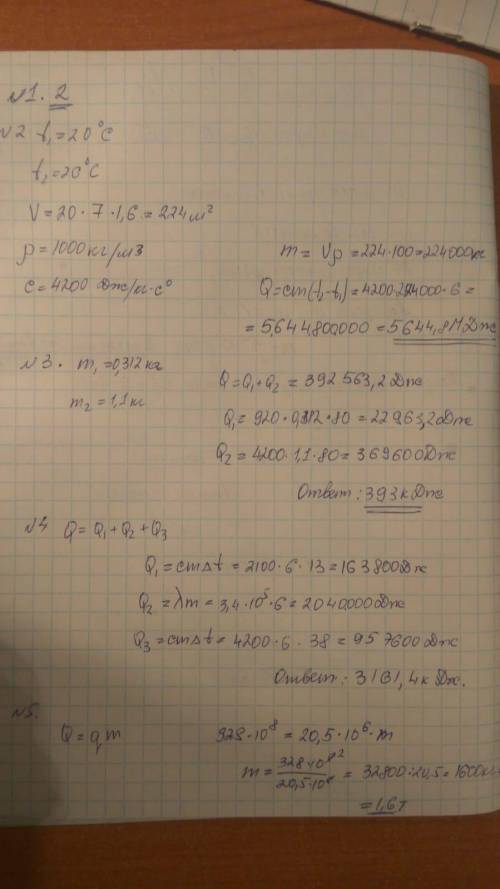 №1. 2
№2 t₁=20°C
t₂=20°C
V=20·7·1,6=224м²
ρ=1000кг/м3
m= Vρ=224·100=224000кг
c=4200 Дж/кг·c°
Q=cm(t₂-t₁)=4200·224000·6=
=5,644,800,000=5644,8МДж
№3. m₁=0,312кг
Q=Q₁+Q₂=392563,2Дж
m₂=1,1кг
Q₁=920·0,312·80=22963,2Дж
Q₂=4200·1,1·80=369600Дж
Ответ: 393кДж
№4 Q=Q₁+Q₂+Q₃
Q₁=cmΔt=2100·6·13=163800Дж
Q₂=λm=3,4·10⁵·6=2040000Дж
Q₃=cmΔt=4200·6·38=957600Дж
Ответ: 3161,4кДж.
№5.
Q=qm
328·10⁸=20,5·10⁶·m
m=328·10⁸ ²/20,5·10⁶=32800:20,5=1600кг=
=1,6т